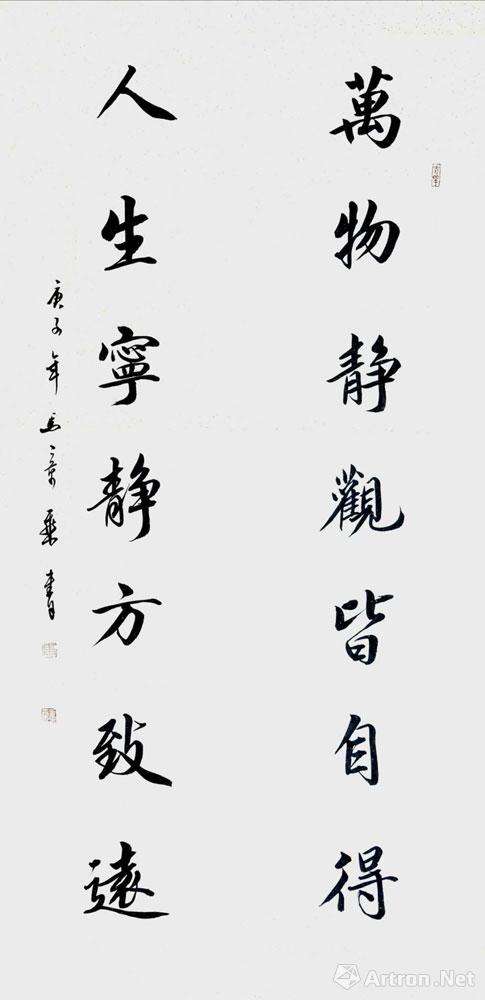 萬物静觀皆自得
人生寧静方致遠
庚子年马章乘書
Artron.Net